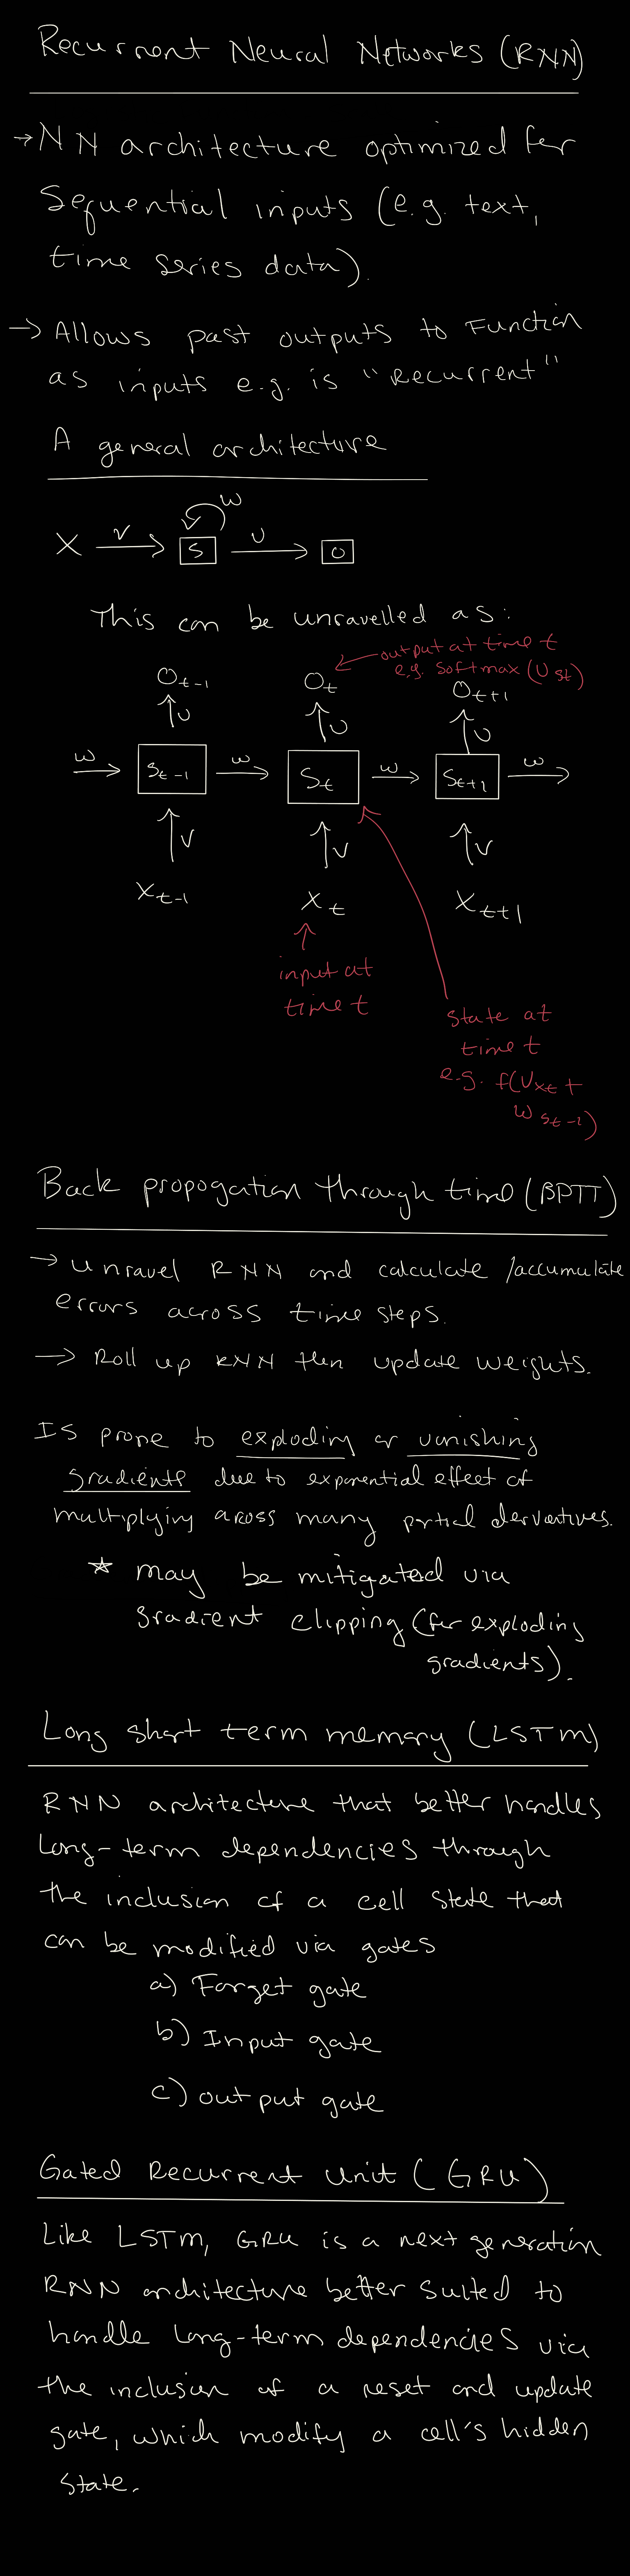 Recurrent Neural Networks (RNN)
→ NN architecture optimized for
Sequential inputs (e.g. text,
time series data).
→ Allows past outputs to function
as inputs e.g. is "recurrent"
A general architecture
W
X V S U O
This can be unravelled as:
output at time t
e.g. softmax (U st)
Ot-1 Ot Ot+1
U U U
W St-1 W St W St+1 W
V V V
Xt-1 Xt Xt+1
input at
time t
state at
time t
e.g. f(Uxt +
W st-1)
Back propogation through time (BPTT)
→ unravel RNN and calculate/accumulate
errors across time steps.
→ Roll up RNN then update weights.
Is prone to exploding or vanishing
gradients due to exponential effect of
multiplying across many partial derivatives.
* may be mitigated via
gradient clipping (for exploding
gradients).
Long short term memory (LSTM)
RNN architecture that better handles
long-term dependencies through
the inclusion of a cell state that
can be modified via gates
a) Forget gate
b) Input gate
c) output gate
Gated Recurrent Unit (GRU)
Like LSTM, GRU is a next generation
RNN architecture better suited to
handle long-term dependencies via
the inclusion of a reset and update
gate, which modify a cell's hidden
state.